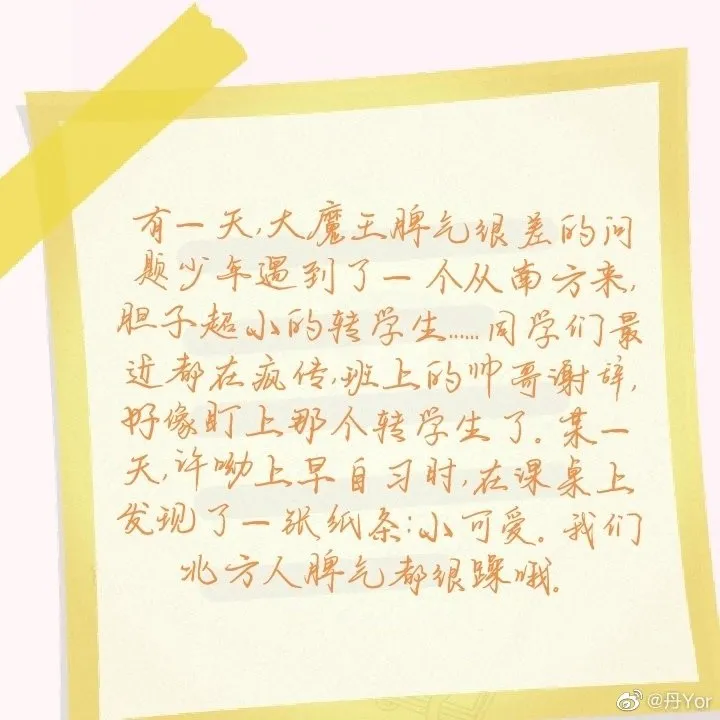 有一天,大魔王脾气很差的问
题少年遇到了一个从南方来,
胆子超小的转学生……同学们最
近都在疯传,班上的帅哥谢辞,
好像盯上那个转学生了。某一
天,许呦上早自习时,在课桌上
发现了一张纸条:小可爱。我们
北方人脾气都很躁哦。
@丹Yor